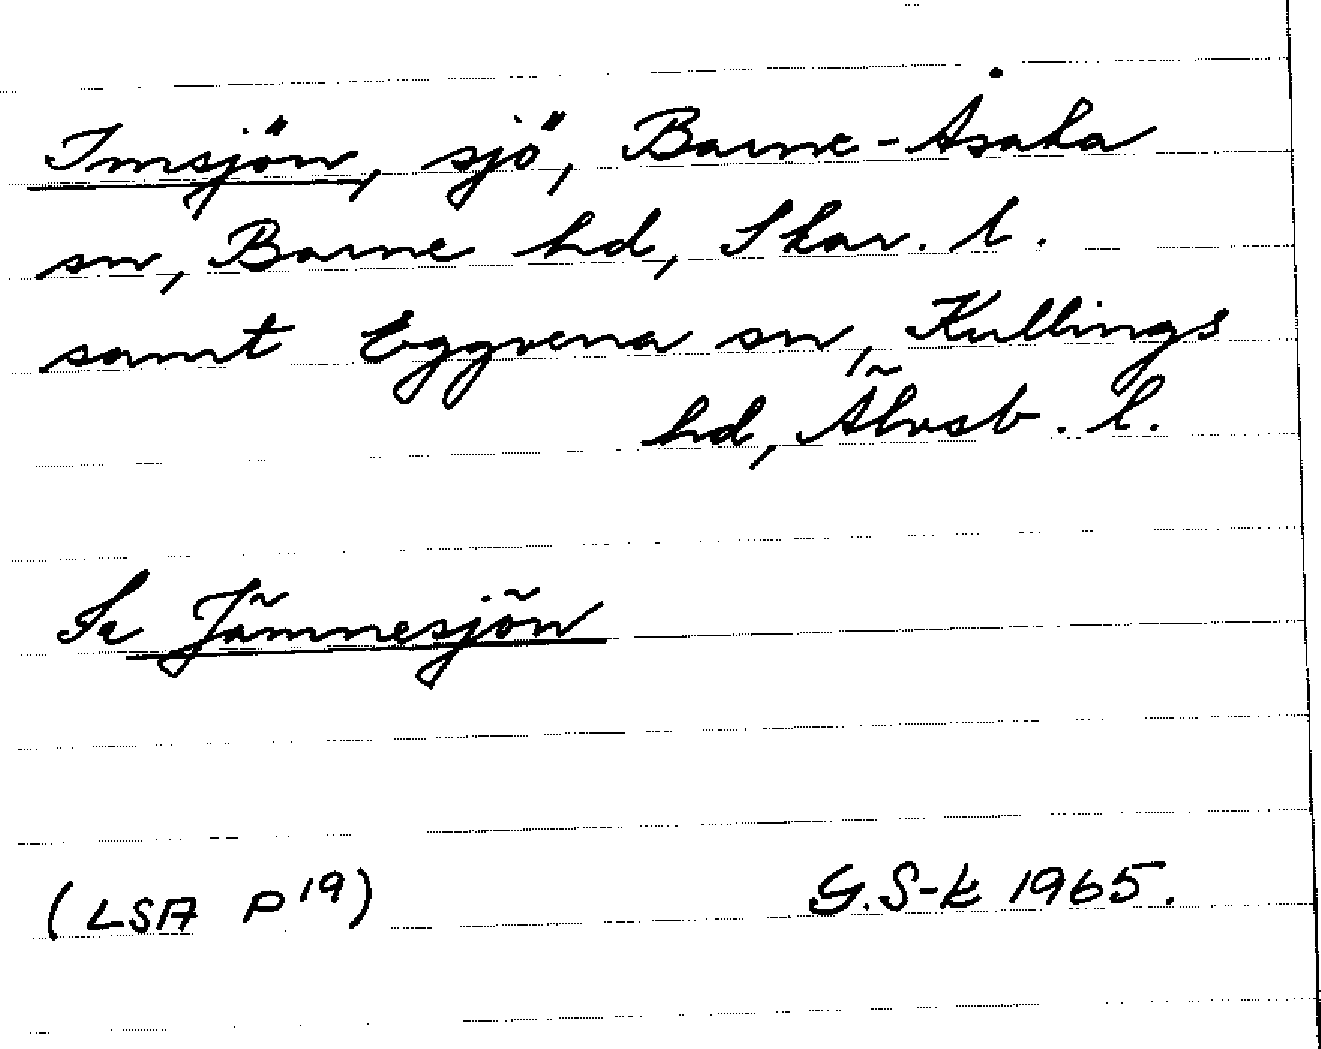 Imsjön, sjö, Barne-Åsaka
sn, Barne hd, Skar. l.
samt Eggvena sn, Kullings
hd, Älvsb. l.
Se Jämnesjön
(LSA P 19) G.S-k 1965.